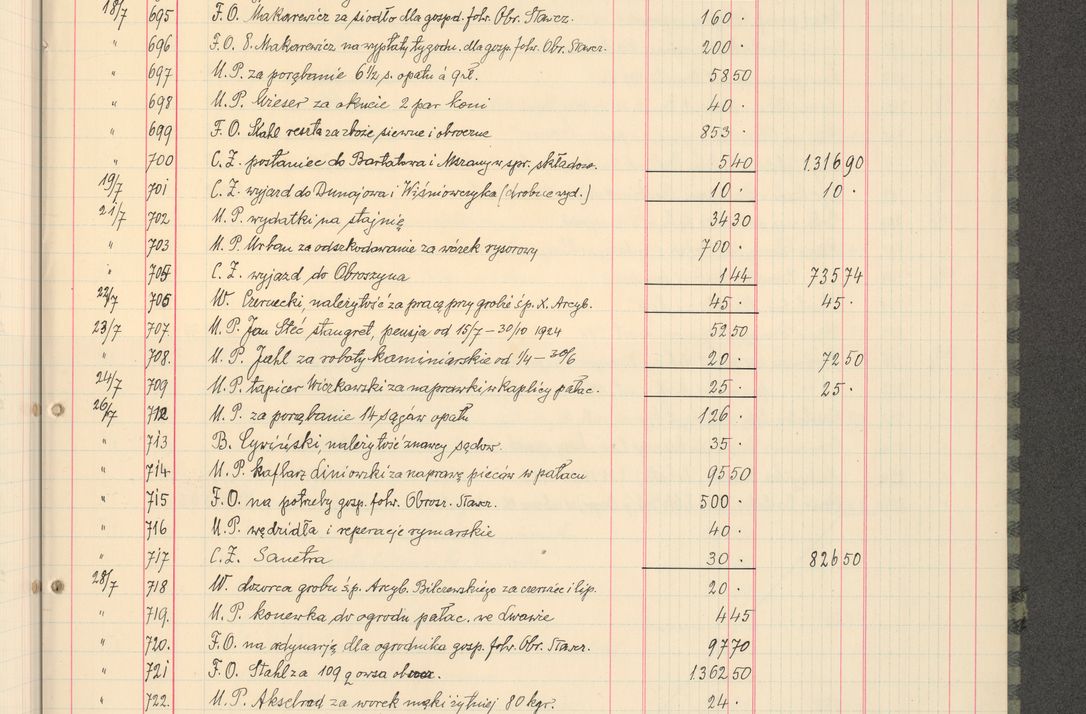 18/7 695 F.O. Makarewicz za siodło dla gospd. folw. Obr. Stawcz. 160 ·
" 696 F.O. E. Makarewicz na wypłaty tygodn. dla gosp. folw. Obr. Stawcz. 200 ·
" 697 U.P. za porąbanie 6 1/2 s. opału á 9 zł. 58 50
" 698 U.P. Wieser za okucie 2 par koni 40 ·
" 699 F.O. Stahl reszta za zboże siewne i obroczne 853 ·
" 700 C.Z. posłaniec do Bartatowa i Mszany w spr. składow. 5 40 1.316 90
19/7 701 C.Z. wyjazd do Dunajowa i Wiśniowczyka (drobne wyd.) 10 · 10 ·
21/7 702 U.P. wydatki na stajnię 34 30
" 703 U.P. Urban za odszkodowanie za wózek resorowy 700 ·
" 704 C.Z. wyjazd do Obroszyna 1 44 735 74
22/7 706 W. Czerwecki, należytość za pracę przy grobie ś.p. X. Arcyb. 45 · 45 ·
23/7 707. U.P. Jan Steć stangret, pensja od 15/7 – 30/10 1924 52 50
" 708. U.P. Jahl za roboty kaminiarskie od 1/4 – 30/6 20 · 72 50
24/7 709 U.P. tapicer Wiczkawski za naprawki w kaplicy pałac. 25 · 25 ·
26/7 712 U.P. za porąbanie 14 sągów opału 126 ·
" 713 B. Cywiński, należytość znawcy sądow. 35 ·
" 714 U.P. kaflarz Liniowski za naprawę pieców w pałacu 95 50
" 715 F.O. na potrzeby gosp. folw. Obrosz. Stawcz. 500 ·
" 716 U.P. wędzidła i reperacje rymarskie 40 ·
" 717 C.Z. Sanetra 30 · 826 50
28/7 718 W. dozorca grobu ś.p. Arcyb. Bilczewskiego za czerwiec i lip. 20 ·
" 719. U.P. konewka do ogrodu pałac. we Lwowie 4 45
" 720. F.O. na ordynarję dla ogrodnika gosp. folw. Obr. Stawcz. 97 70
" 721 F.O. Stahl za 109 q owsa 1.362 50
" 722. U.P. Akselrad za worek mąki żytniej 80 kgr. 24 ·